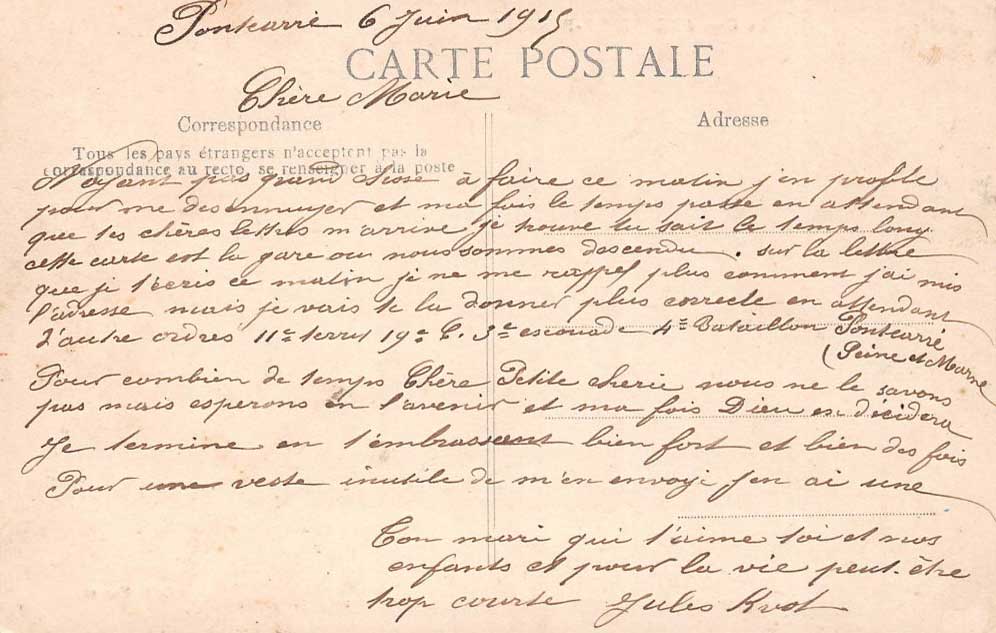 Pontcarré 6 Juin 1915
CARTE POSTALE
Chère Marie
Correspondance
Adresse
Tous les pays étrangers n'acceptent pas la
correspondance au recto, se renseigner à la poste
N'ayant pas grand chose à faire ce matin j'en profite
pour me desennuyer et ma fois le temps passe en attendant
que tes chères lettres m'arrive je trouve tu sait le temps long
cette carte est la gare ou nous sommes descendu. sur la lettre
que je t'écris ce matin je ne me rappel plus comment j'ai mis
l'adresse mais je vais te la donner plus correcte en attendant
d'autre ordres 11e territ 19e C. 3e escouade 4e Bataillon Pontcarré
(Seine et Marne
Pour combien de temps Chère Petite cherie nous ne le savons
pas mais esperons en l'avenir et ma fois Dieu en décidera
Je termine en t'embrassant bien fort et bien des fois
Pour une veste inutile de m'en envoyé j'en ai une
Ton mari qui t'aime toi et nos
enfants et pour la vie peut-être
trop courte Jules